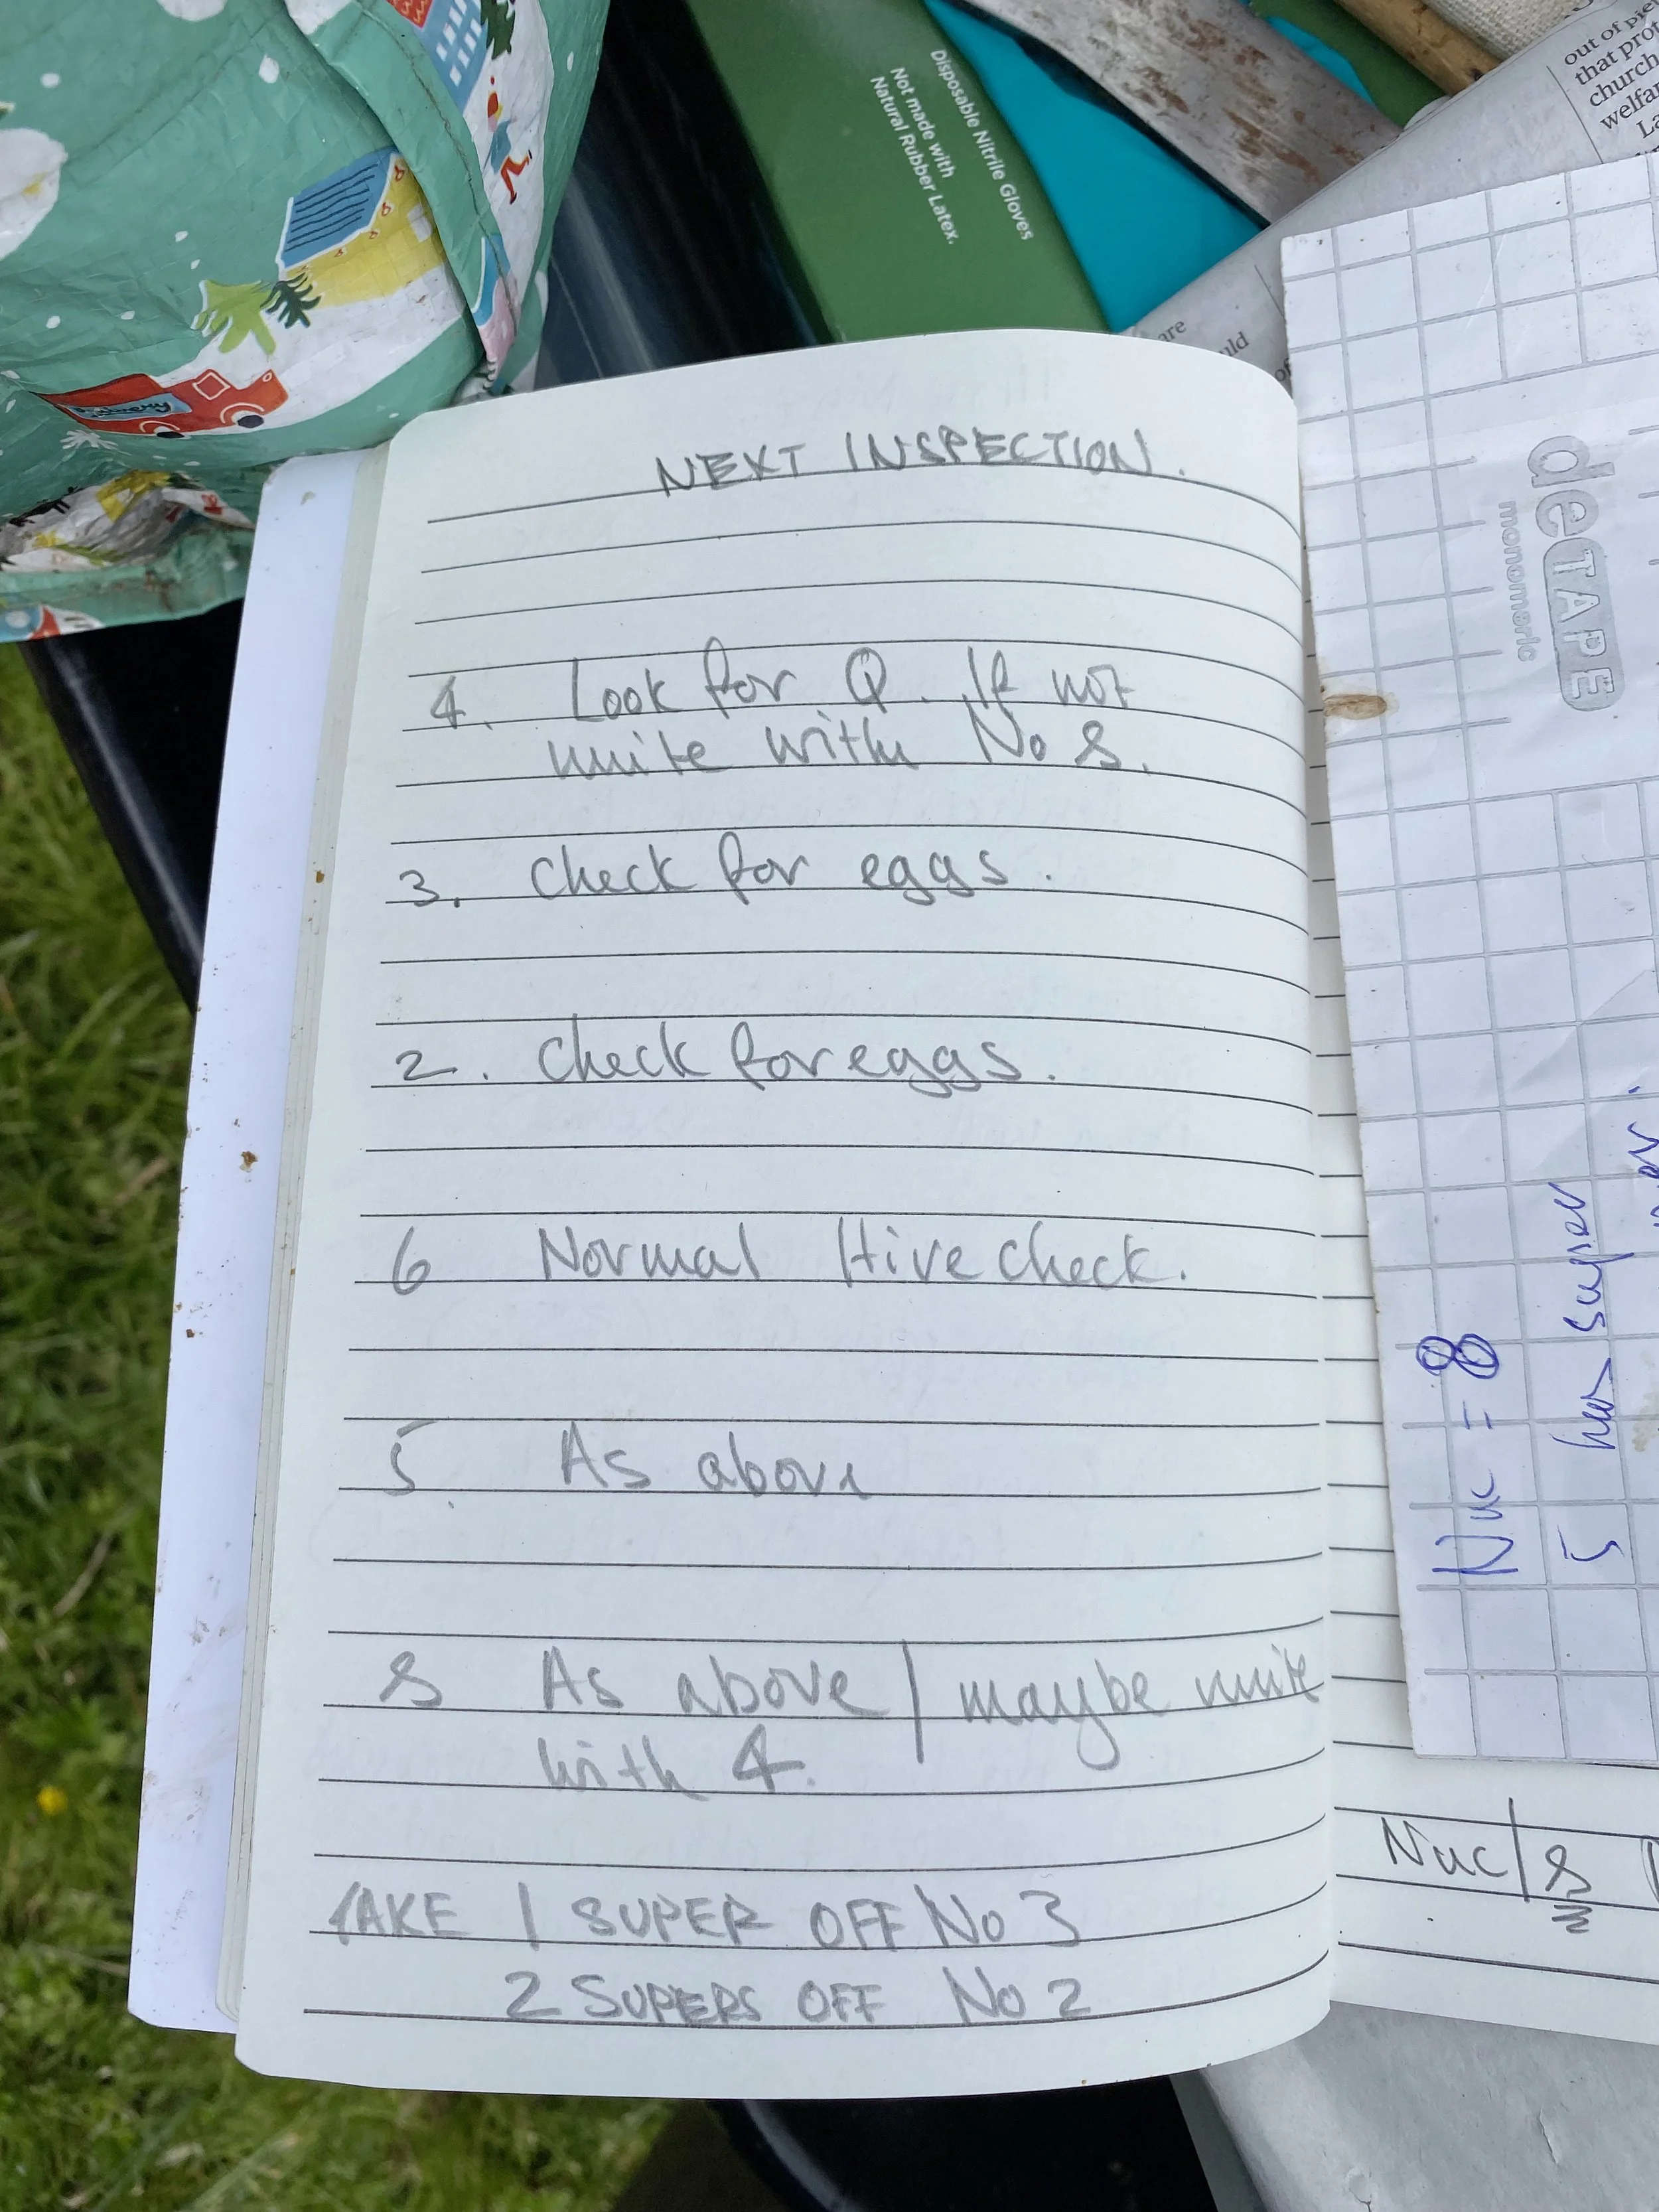 Disposable Nitrile Gloves
Not made with
Natural Rubber Latex.
out of
that
church
are
deTAPE
monomeric
NEXT INSPECTION.
4. Look for Q. If not
unite with No 8.
3. Check for eggs.
2. Check for eggs.
6 Normal Hive check.
5 As above
8 As above / maybe unite
with 4.
TAKE 1 SUPER OFF No 3
2 SUPERS OFF No 2
Nuc = 8
5 has super
Nuc / 8